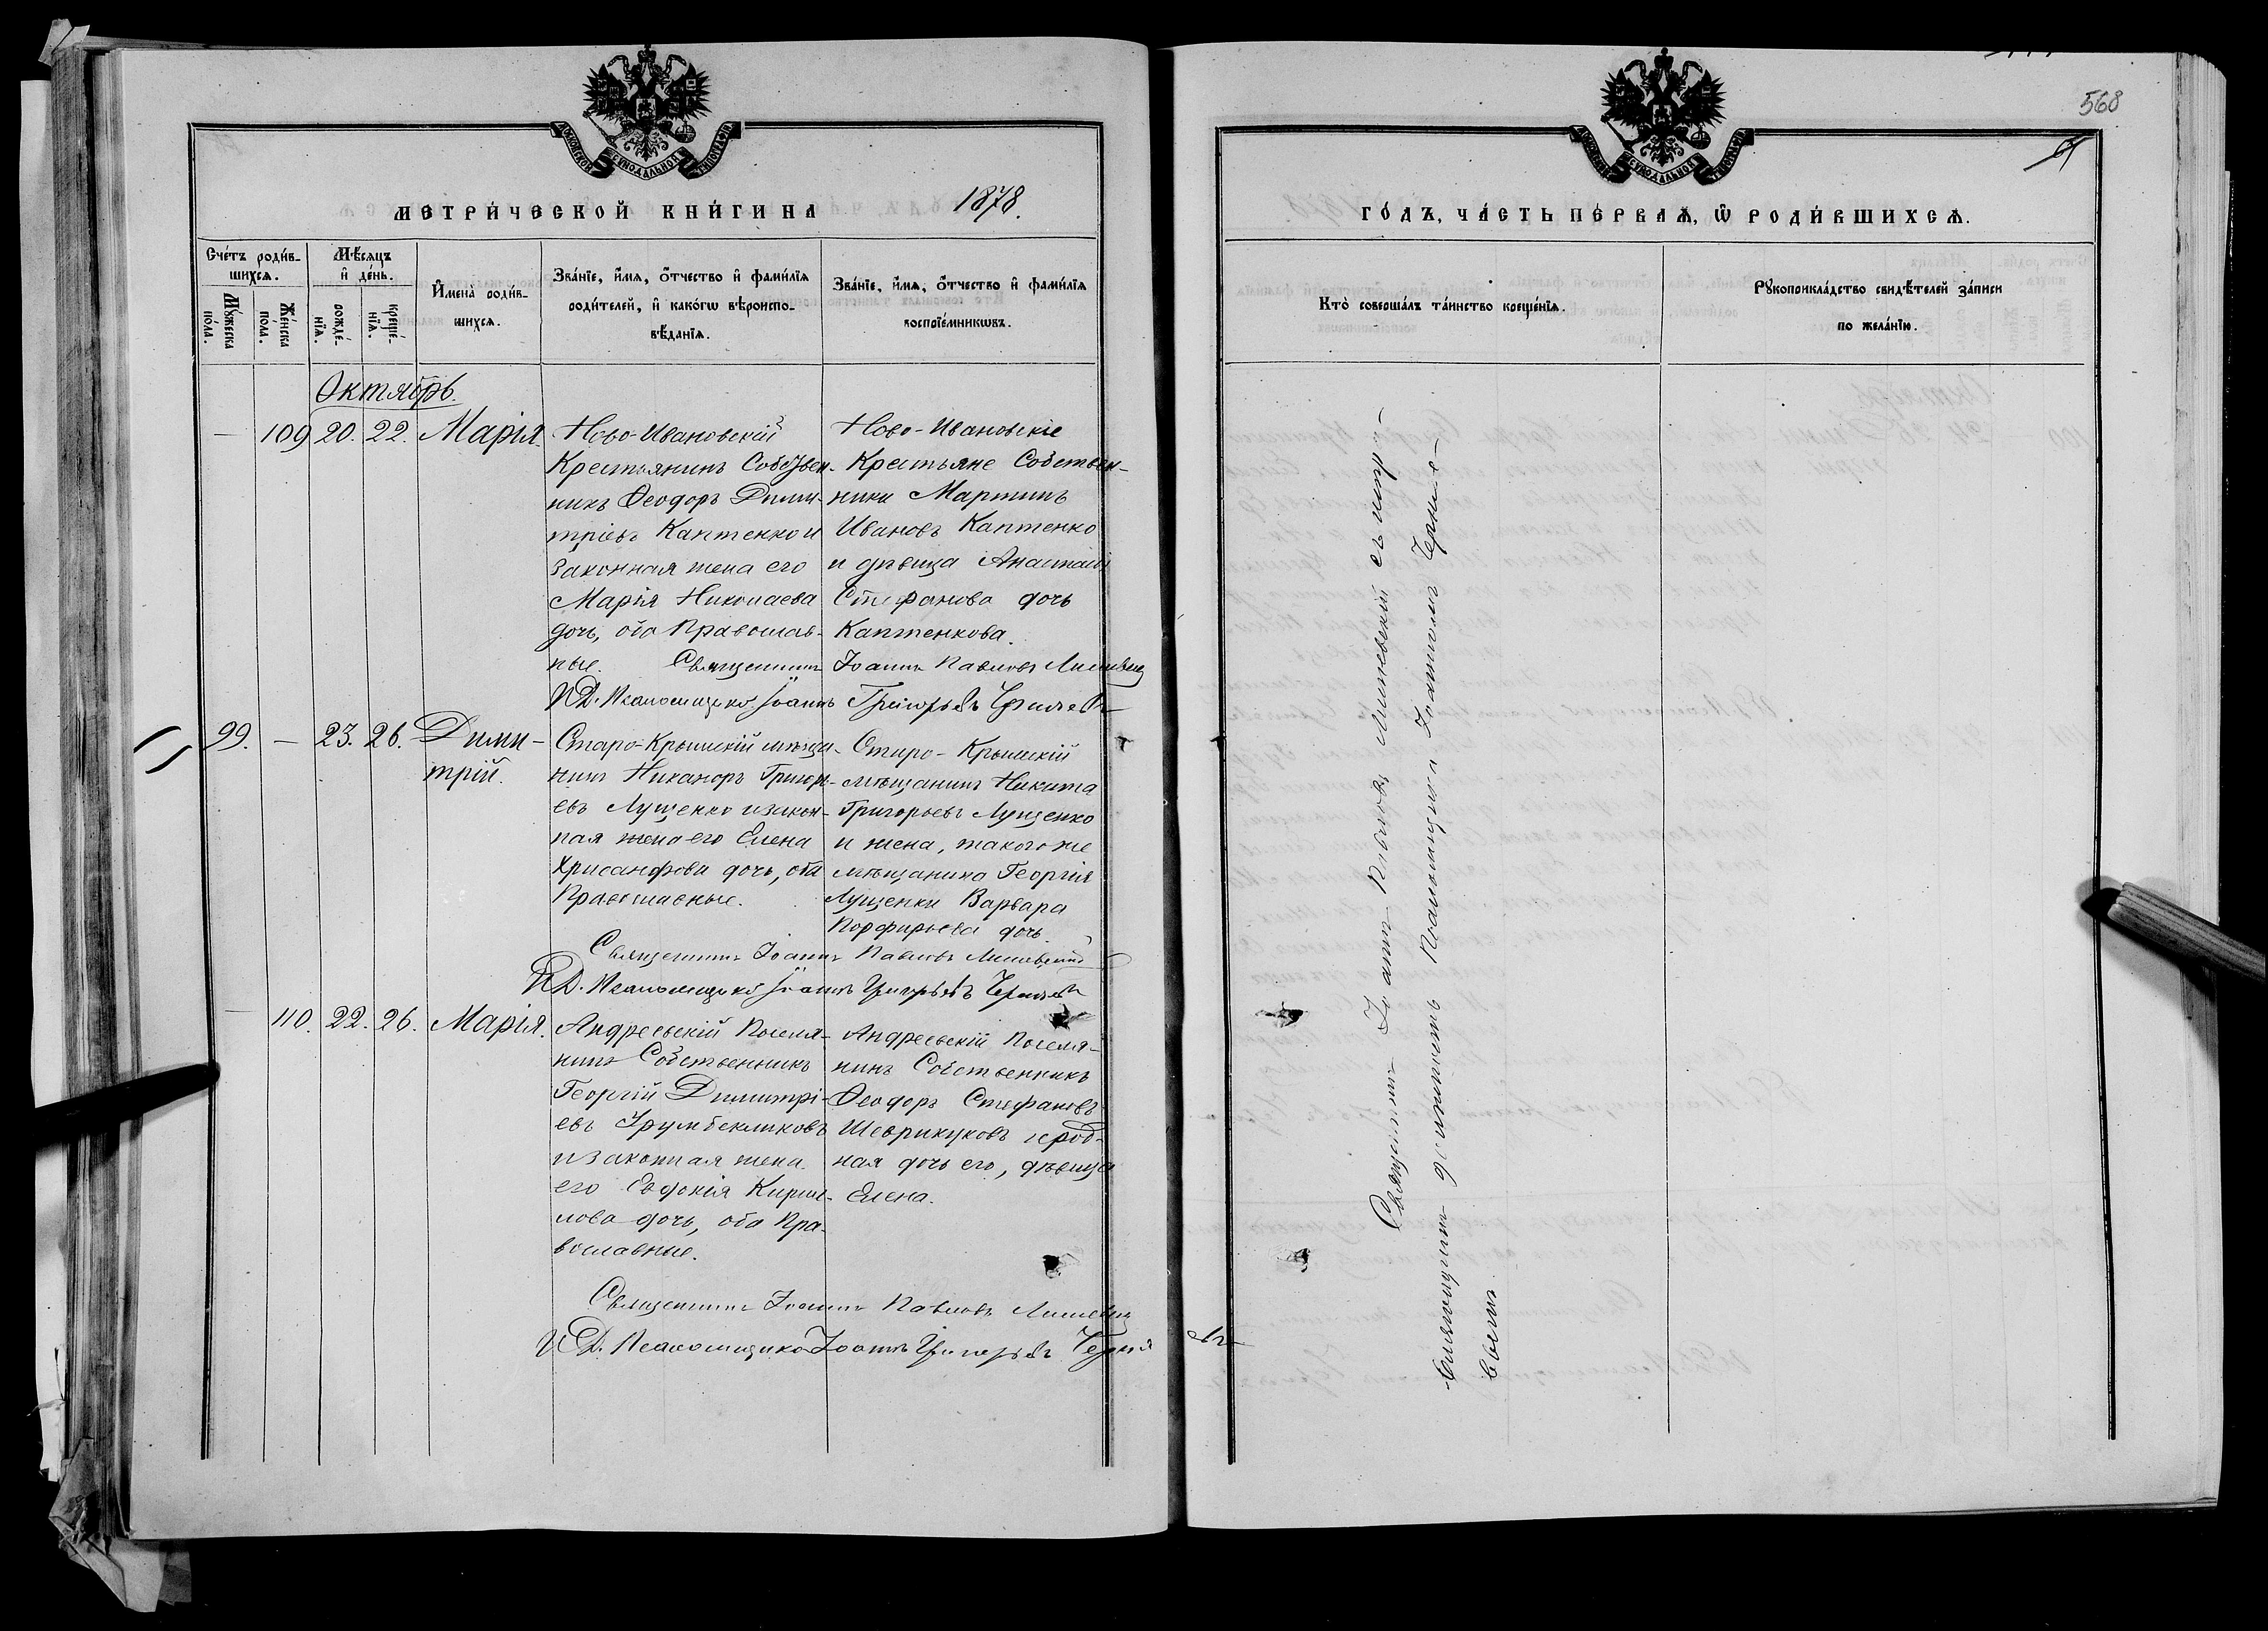 568
МЕТРИ́ЧЕСКОЙ КНИ́ГИ НА 1878.
ГО́ДЪ, ЧА́СТЬ ПЕ́РВАѦ, Ѡ РОДИ́ВШИХСѦ.
Сче́тъ роди́в-
шихсѧ.
Мѹ́жеска
по́ла.
Же́нска
по́ла.
Мѣ́сѧцъ
и де́нь.
рожде́-
нїѧ.
креще́-
нїѧ.
Имена̀ роди́в-
шихсѧ.
Зва́нїе, и́мѧ, о́тчество и фами́лїѧ
роди́телей, и како́гѡ вѣроиспо-
вѣ́данїѧ.
Зва́нїе, и́мѧ, о́тчество и фами́лїѧ
воспрїе́мникѡвъ.
Кто̀ соверша́лъ та́инство креще́нїѧ.
Рѹкоприкла́дство свидѣ́телей за́писи
по жела́нїю.
Октябрь.
— 109 20. 22. Марія.
Ново-Ивановскій
Крестьянинъ Собствен-
никъ Ѳеодоръ Дими-
тріевъ Каптенко и
законная жена его
Марія Николаева
дочь, оба Православ-
ные.
Ново-Ивановскіе
Крестьяне Собствен-
ники Мартинъ
Ивановъ Каптенко
и дѣвица Анастасія
Стефанова дочь
Каптенкова.
Священникъ Іоаннъ Павловъ
И.Д. Псаломщика Іоаннъ Григорьевъ
99. — 23. 26. Дими-
трій.
Старо-Крымскій мѣща-
нинъ Никаноръ Григорь-
евъ Лущенко и закон-
ная жена его Елена
Хрисанфова дочь, оба
Православные.
Старо-Крымскій
мѣщанинъ Никита
Григорьевъ Лущенко
и жена, такого же
мѣщанина Георгія
Лущенки Варвара
Порфирьева дочь.
Священникъ Іоаннъ Павловъ
И.Д. Псаломщика Іоаннъ Григорьевъ
— 110. 22. 26. Марія.
Андреевскій Поселя-
нинъ Собственникъ
Георгій Димитрі-
евъ
и законная жена
его Евдокія Кирил-
лова дочь, оба Пра-
вославные.
Андреевскій Поселя-
нинъ Собственникъ
Ѳеодоръ Стефановъ
и род-
ная дочь его, дѣвица
Елена.
Священникъ Іоаннъ Павловъ
И.Д. Псаломщика Іоаннъ Григорьевъ
Священникъ Іоаннъ Павловъ съ испр-
авляющимъ должность Псаломщика Іоанномъ